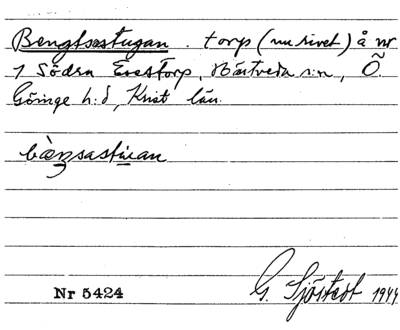 Bengtsastugan. torp (nu rivet) å nr
1 Södra Evestorp, Nävlveda s:n, Ö.
Göinge h:d, Krist län.
bæ̀ŋsastu̇an
Nr 5424 G. Sjöstedt 1944